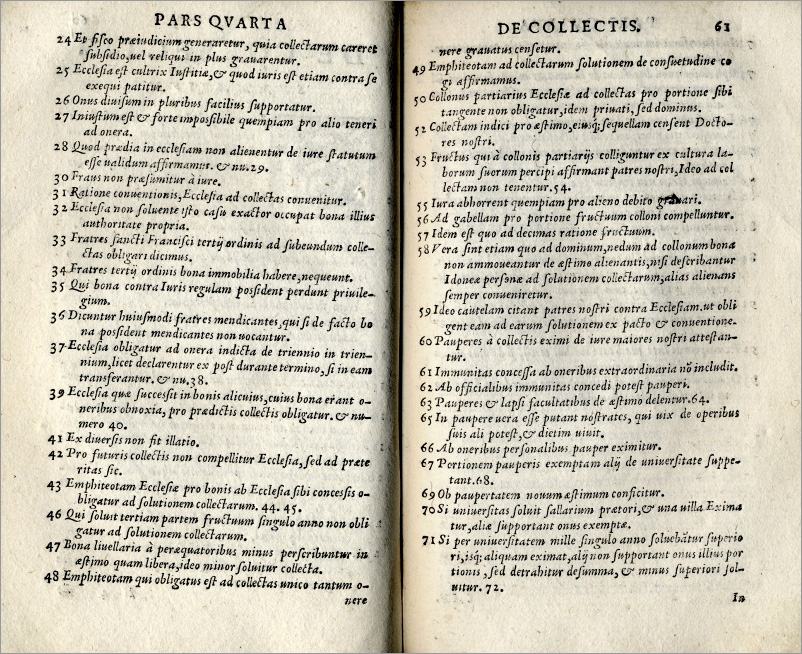 PARS QVARTA
24 Et fisco præiudicium generaretur, quia collectarum careret
subsidio, uel reliqui in plus grauarentur.
25 Ecclesia est cultrix Iustitiæ, & quod iuris est etiam contra se
exequi patitur.
26 Onus diuisum in pluribus facilius supportatur.
27 Iniustum est & forte impossibile quempiam pro alio teneri
ad onera.
28 Quod prædia in ecclesiam non alienentur de iure statutum
esse ualidum affirmamus. & nu. 29.
30 Fraus non præsumitur à iure.
31 Ratione conuentionis, Ecclesia ad collectas conuenitur.
32 Ecclesia non soluente isto casu exactor occupat bona illius
authoritate propria.
33 Fratres sancti Francisci tertij ordinis ad subeundum colle-
ctas obligari dicimus.
34 Fratres tertij ordinis bona immobilia habere, nequeunt.
35 Qui bona contra Iuris regulam possident perdunt priuile-
gium.
36 Dicuntur huiusmodi fratres mendicantes, qui si de facto bo
na possident mendicantes non uocantur.
37 Ecclesia obligatur ad onera indicta de triennio in trien-
nium, licet declarentur ex post durante termino, si in eam
transferantur. & nu. 38.
39 Ecclesia quæ successit in bonis alicuius, cuius bona erant o-
neribus obnoxia, pro prædictis collectis obligatur. & nu-
mero 40.
41 Ex diuersis non fit illatio.
42 Pro futuris collectis non compellitur Ecclesia, sed ad præte
ritas sic.
43 Emphiteotam Ecclesiæ pro bonis ab Ecclesia sibi concessis o-
bligatur ad solutionem collectarum. 44. 45.
46 Qui soluit tertiam partem fructuum singulo anno non obli
gatur ad solutionem collectarum.
47 Bona liuellaria à peræquatoribus minus perscribuntur in
æstimo quam libera, ideo minor soluitur collecta.
48 Emphiteotam qui obligatus est ad collectas unico tantum o-
nere
DE COLLECTIS. 61
nere grauatus censetur.
49 Emphiteotam ad collectarum solutionem de consuetudine co
gi affirmamus.
50 Collonus partiarius Ecclesiæ ad collectas pro portione sibi
tangente non obligatur, idem priuati, sed dominus.
52 Collectam indici pro æstimo, eiusq; sequellam censent Docto-
res nostri.
53 Fructus qui à collonis partiarijs colliguntur ex cultura la-
borum suorum percipi affirmant patres nostri, Ideo ad col
lectam non tenentur. 54.
55 Iura abhorrent quempiam pro alieno debito grauari.
56 Ad gabellam pro portione fructuum colloni compelluntur.
57 Idem est quo ad decimas ratione fructuum.
58 Vera sint etiam quo ad dominum, nedum ad collonum bona
non ammoueantur de æstimo alienantis, nisi describantur
Idoneæ personæ ad solutionem collectarum, alias alienans
semper conueniretur.
59 Ideo cautelam citant patres nostri contra Ecclesiam. ut obli
gent eam ad earum solutionem ex pacto & conuentione.
60 Pauperes à collectis eximi de iure maiores nostri attestan-
tur.
61 Immunitas concessa ab oneribus extraordinaria nõ includit.
62 Ab officialibus immunitas concedi potest pauperi.
63 Pauperes & lapsi facultatibus de æstimo delentur. 64.
65 In paupere uera esse putant nostrates, qui uix de operibus
suis ali potest, & dietim uiuit.
66 Ab oneribus personalibus pauper eximitur.
67 Portionem pauperis exemptam alij de uniuersitate suppe-
tant. 68.
69 Ob paupertatem nouum æstimum conficitur.
70 Si uniuersitas soluit sallarium prætori, & una uilla Exima
tur, aliæ supportant onus exemptæ.
71 Si per uniuersitatem mille singulo anno soluebãtur superio
ri, isq; aliquam eximat, alij non supportant onus illius por
tionis, sed detrahitur desumma, & minus superiori sol-
uitur. 72.
In